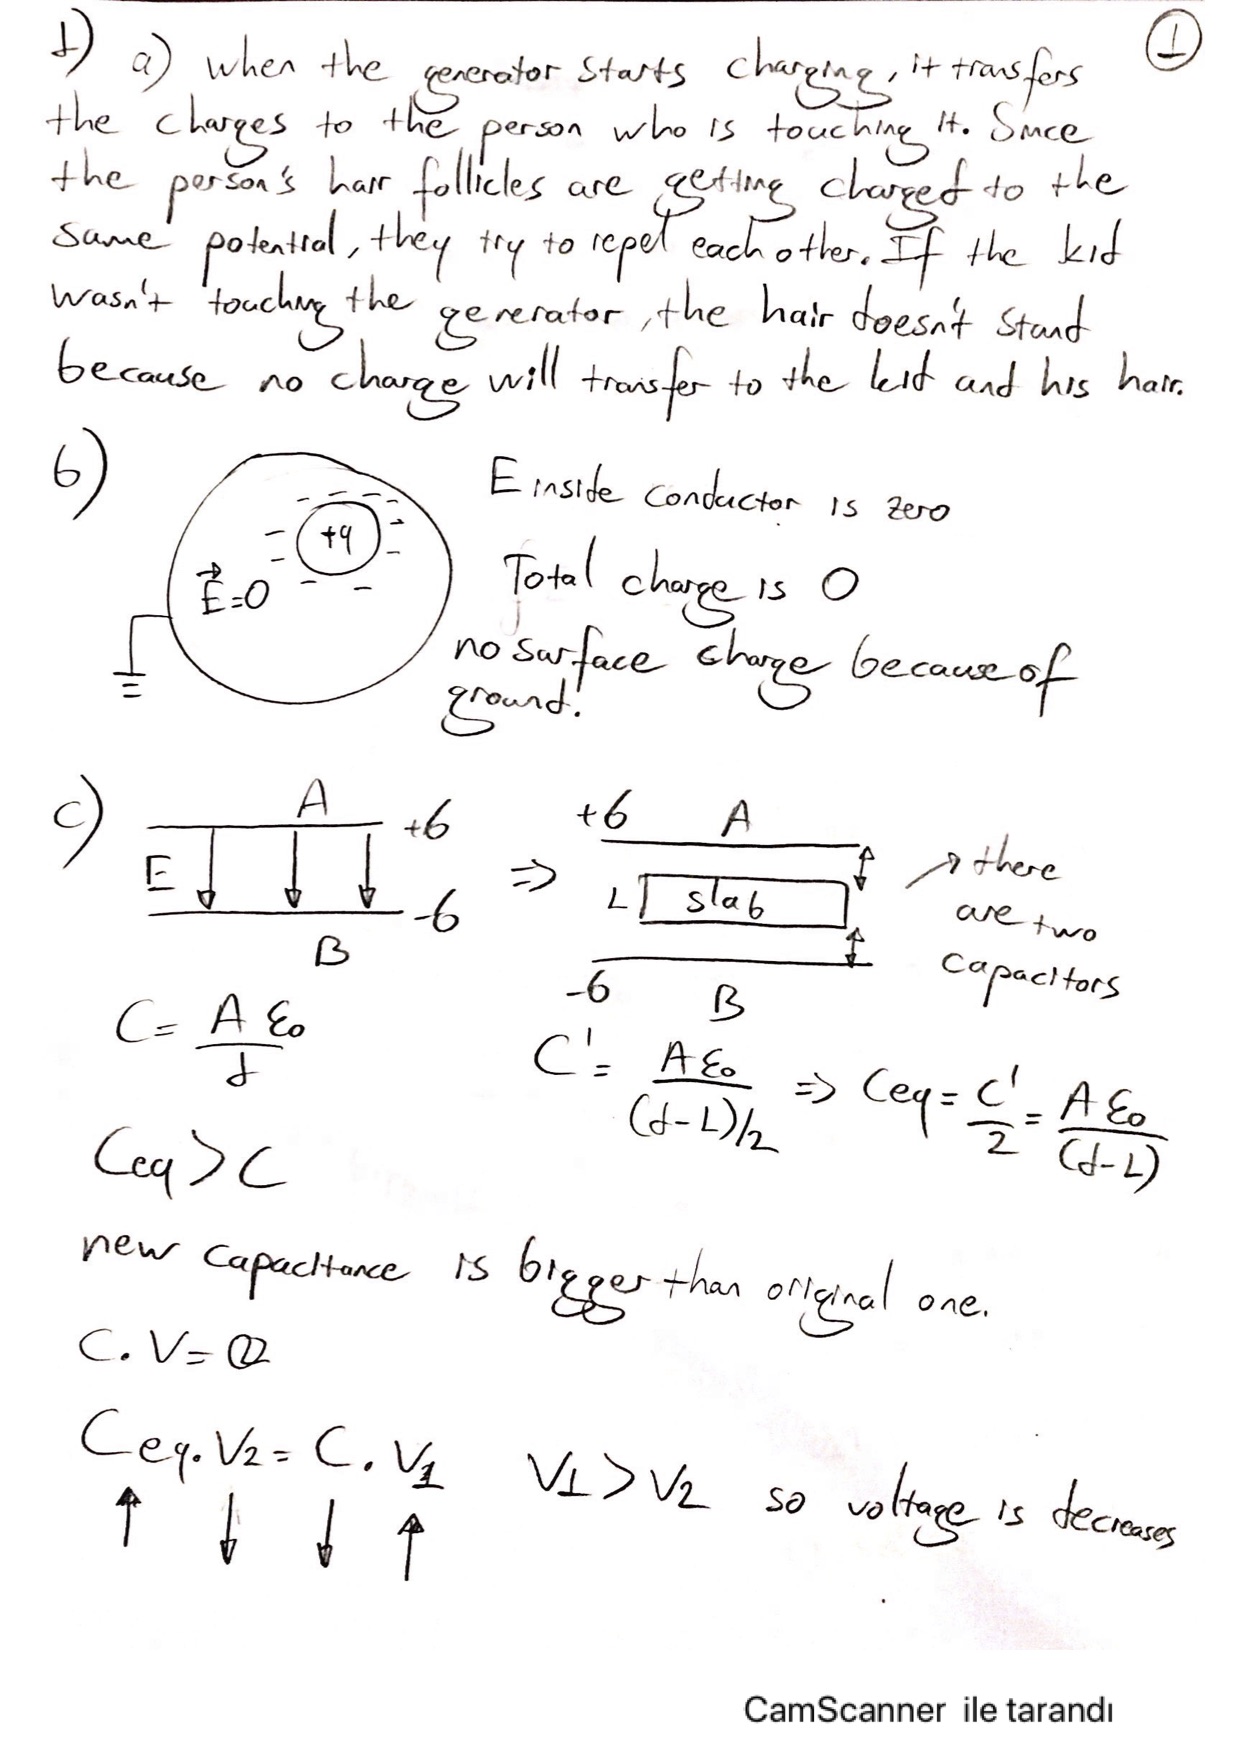 1) a) when the generator starts charging, it transfers
①
the charges to the person who is touching it. Since
the person's hair follicles are getting charged to the
same potential, they try to repel each other. If the kid
wasn't touching the generator, the hair doesn't stand
because no charge will transfer to the kid and his hair.
b)
+q
E⃗=0
E inside conductor is zero
Total charge is 0
no surface charge because of
ground.
c)
A
+6
E
-6
B
⇒
+6 A
L slab
-6 B
↗ there
are two
capacitors
C = A ε₀ / d
C' = A ε₀ / (d-L)/2 ⇒ Ceq = C'/2 = A ε₀ / (d-L)
Ceq > C
new capacitance is bigger than original one.
C. V = Q
Ceq. V2 = C. V1 V1 > V2 so voltage is decreases
↑ ↓ ↓ ↑
CamScanner ile tarandı